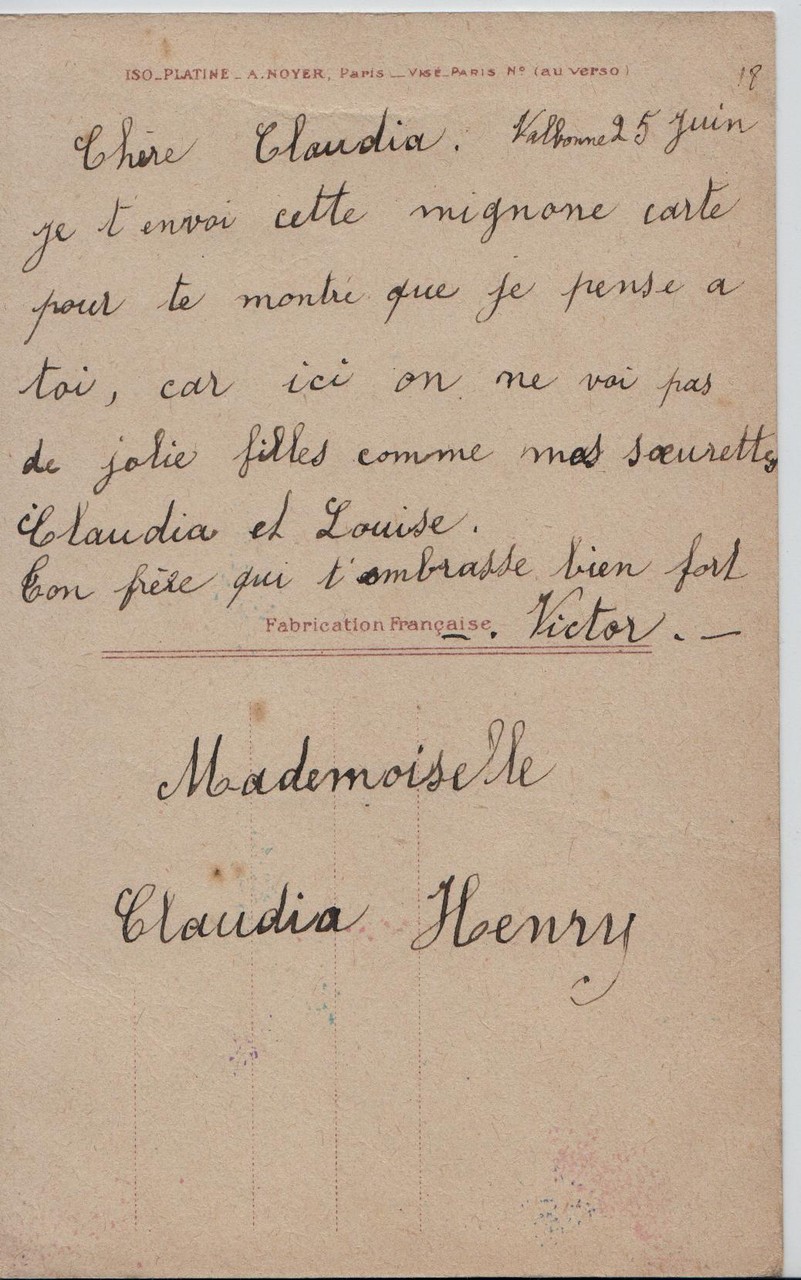 ISO-PLATINE - A. NOYER, Paris - VISÉ-PARIS Nº (au verso)
18
Chère Claudia. Valbonne 25 Juin
je t'envoi cette mignone carte
pour te montré que je pense a
toi, car ici on ne voi pas
de jolie filles comme mes sœurettes
Claudia et Louise.
Ton frère qui t'embrasse bien fort
Fabrication Française
-. Victor. -
Mademoiselle
Claudia Henry